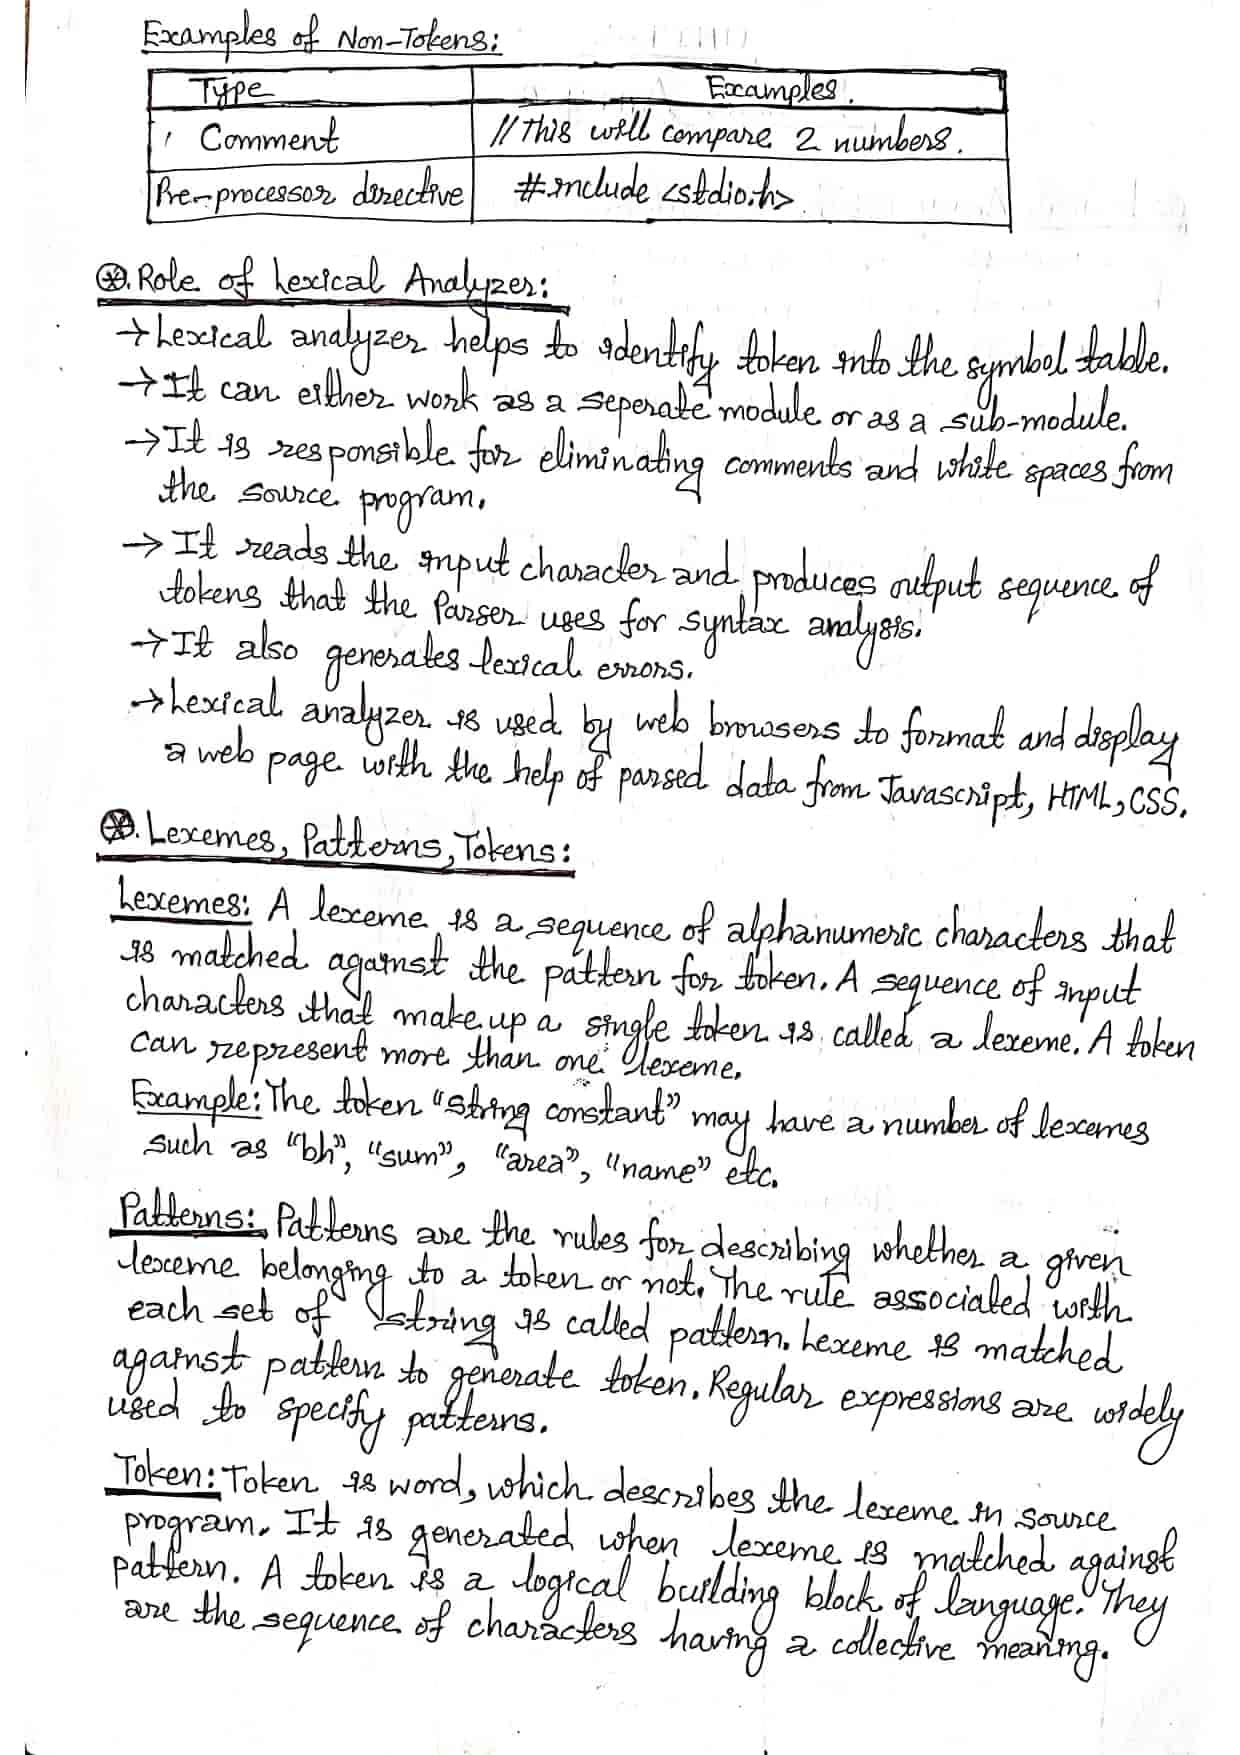 Examples of Non-Tokens:
Type Examples.
Comment //This will compare 2 numbers.
Pre-processor directive #include <stdio.h>
⊛. Role of Lexical Analyzer:
→Lexical analyzer helps to identify token into the symbol table.
→It can either work as a seperate module or as a sub-module.
→It is responsible for eliminating comments and white spaces from
the source program.
→It reads the input character and produces output sequence of
tokens that the Parser uses for syntax analysis.
→It also generates lexical errors.
→Lexical analyzer is used by web browsers to format and display
a web page with the help of parsed data from Javascript, HTML, CSS.
⊛. Lexemes, Patterns, Tokens:
Lexemes: A lexeme is a sequence of alphanumeric characters that
is matched against the pattern for token. A sequence of input
characters that make up a single token is called a lexeme. A token
can represent more than one lexeme.
Example: The token "string constant" may have a number of lexemes
such as "bh", "sum", "area", "name" etc.
Patterns: Patterns are the rules for describing whether a given
lexeme belonging to a token or not. The rule associated with
each set of string is called pattern. Lexeme is matched
against pattern to generate token. Regular expressions are widely
used to specify patterns.
Token: Token is word, which describes the lexeme in source
program. It is generated when lexeme is matched against
pattern. A token is a logical building block of language. They
are the sequence of characters having a collective meaning.